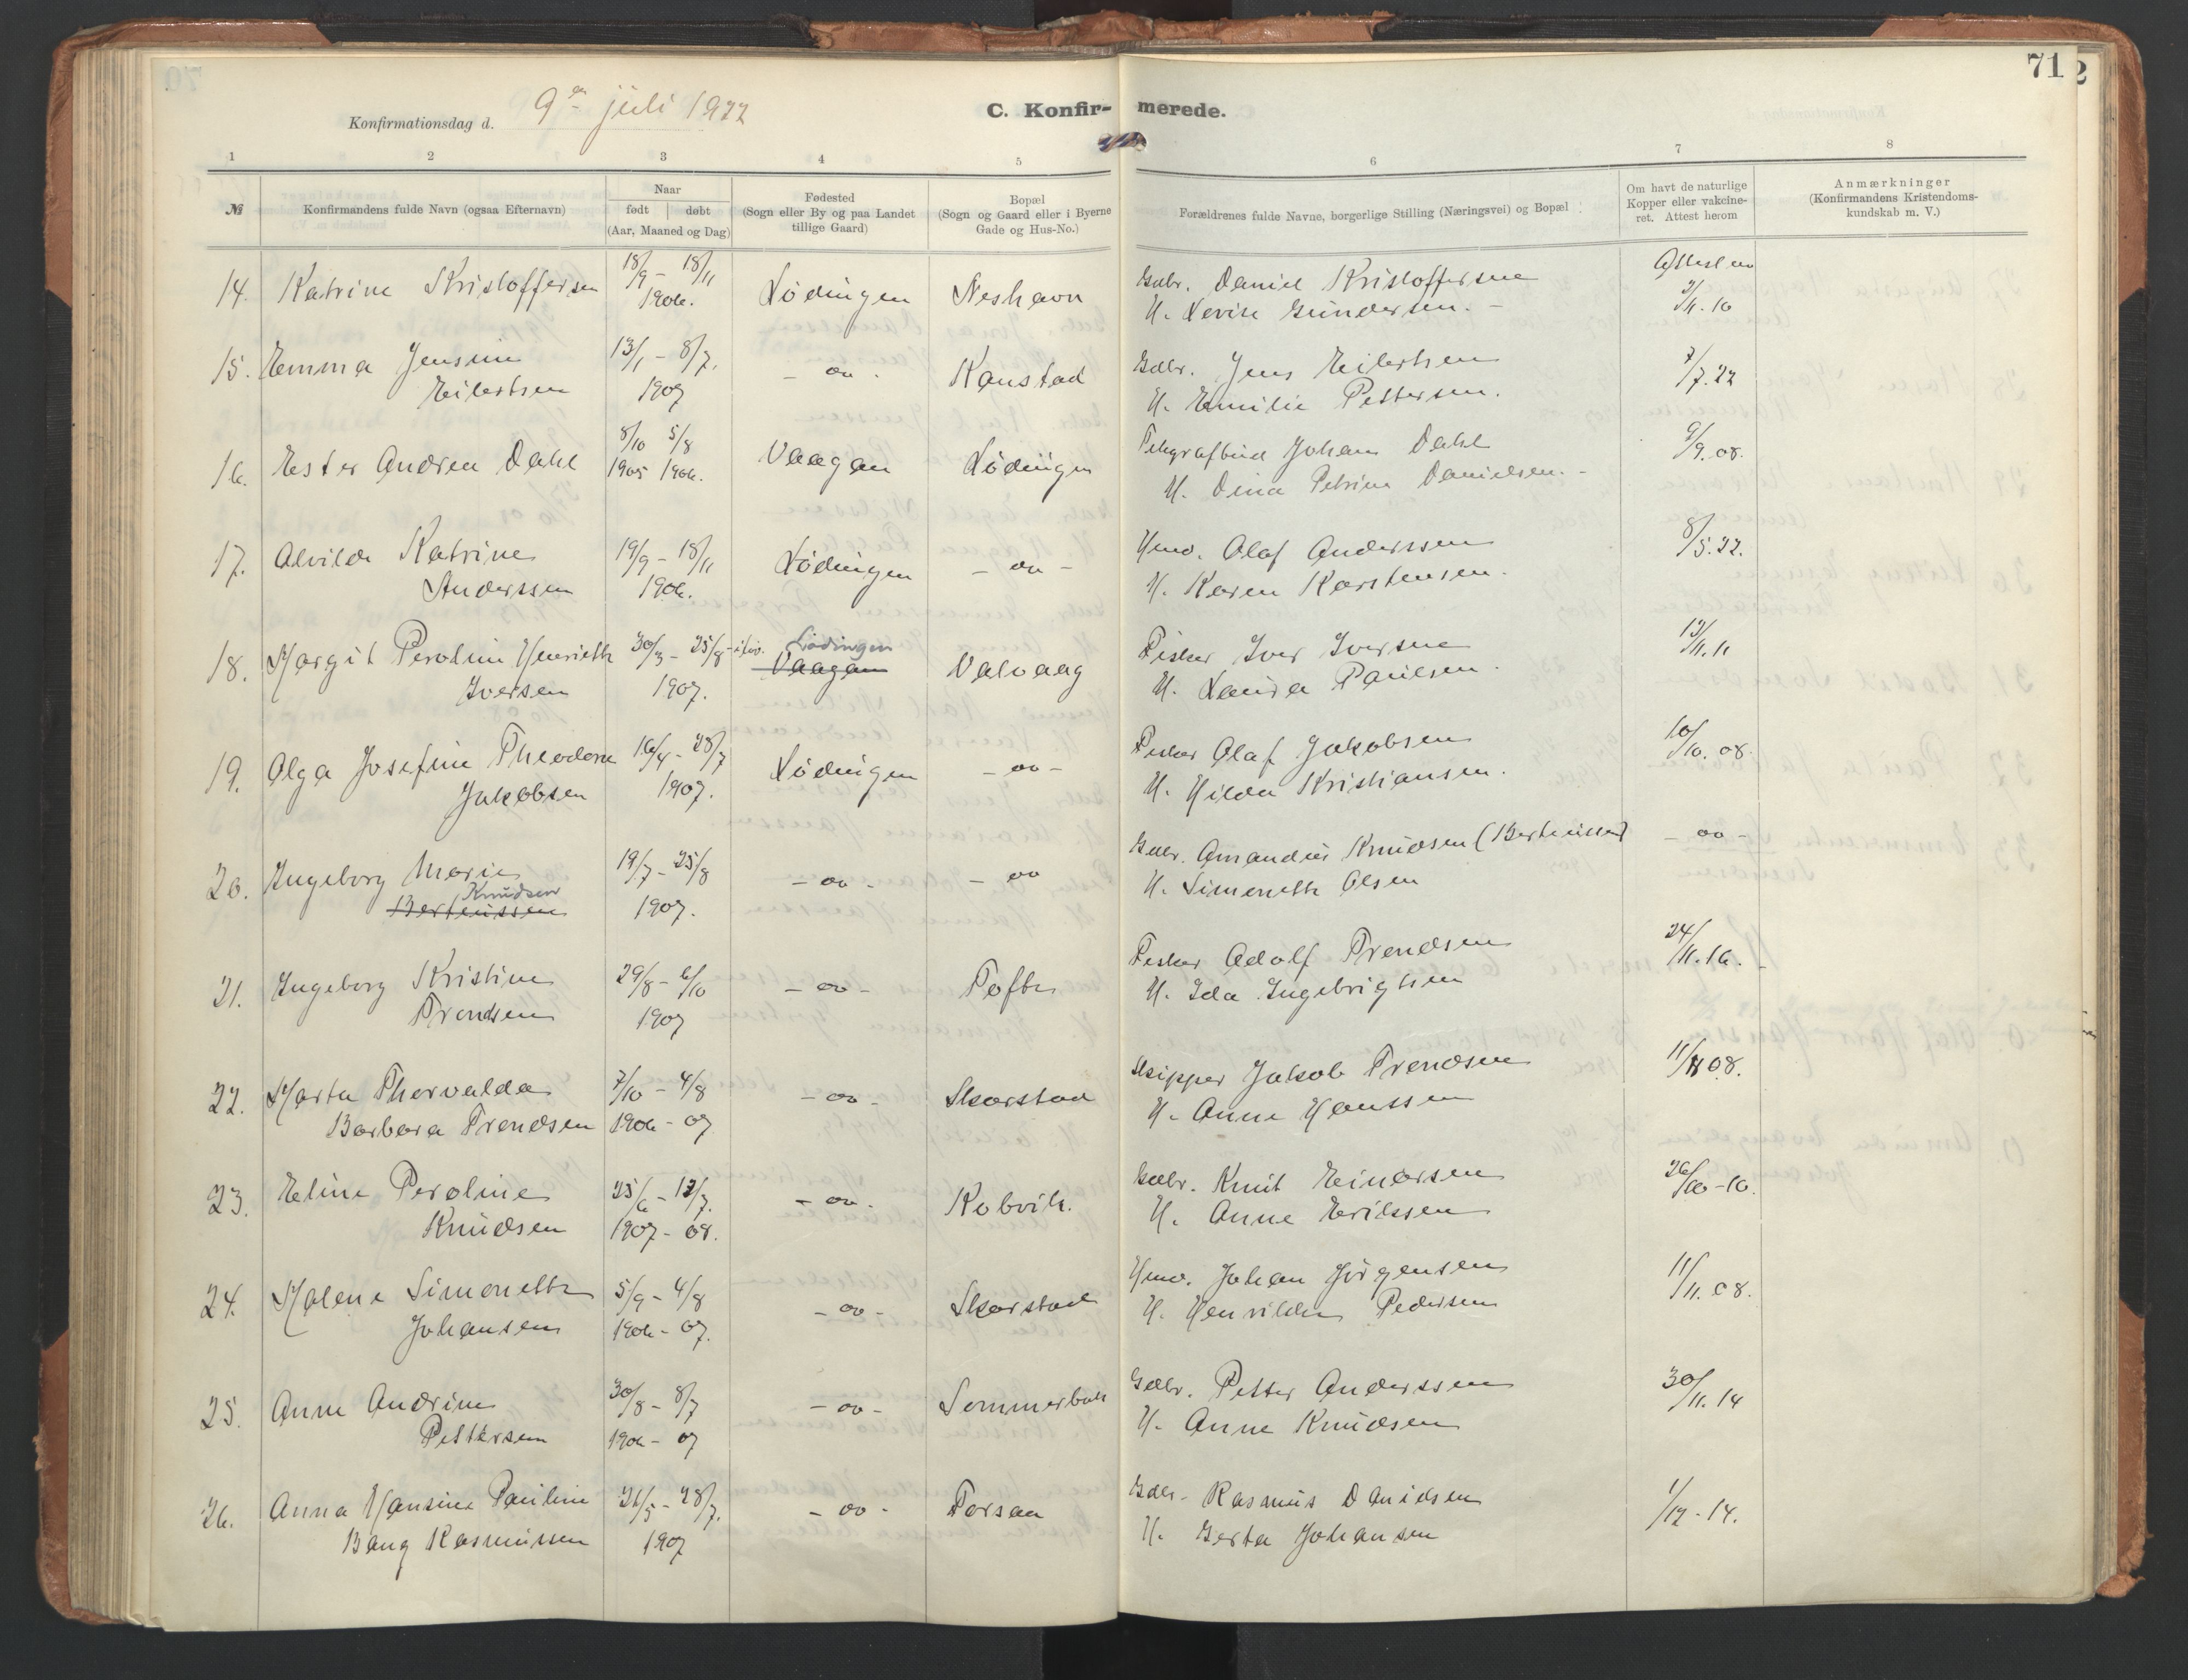 71
2
Konfirmationsdag d. 9de juli 1922
C. Konfir-merede.
1 2 3 4 5 6 7 8
№
Konfirmandens fulde Navn (ogsaa Efternavn)
Naar
født | døbt
(Aar, Maaned og Dag)
Fødested
(Sogn eller By og paa Landet
tillige Gaard)
Bopæl
(Sogn og Gaard eller i Byerne
Gade og Hus-No.)
Forældrenes fulde Navne, borgerlige Stilling (Næringsvei) og Bopæl
Om havt de naturlige
Kopper eller vakcine-
ret. Attest herom
Anmærkninger
(Konfirmandens Kristendoms-
kundskab m. V.)
14. Katrine Kristoffersen 18/9 - 18/11 Lødingen Neshavn Gdbr. Daniel Kristoffersen Attest av
1906. H. Gundersen. - 3/11.10
15. Emma Jensine 13/1 - 8/7. - " - Kanstad Gdbr. Jens Eilertsen 7/7.22
Eilertsen 1907 H. Emilie Pettersen.
16. Ester Andrea Dahl 8/10 5/8 Vaagan Lødingen Telegrafbud Johan Dahl 9/9.08.
1905 1906. H. Dina Petrine Danielsen. -
17. Alvilde Katrine 19/9 - 18/11 Lødingen - " - Hmd. Olaf Anderssen 8/5.22.
Anderssen 1906. H. Karen Karstensen.
18. Margit Peroline Henriette 30/3 - 25/8 Lødingen Valvaag Fisker Iver Iversen 13/11.11
Iversen 1907. Vaagan H. Paulsen.
19. Olga Josefine Theodora 16/4 - 28/7 Lødingen - " - Fisker Olaf Jakobsen 10/10.08.
Jakobsen 1907. H. Hilda Kristiansen.
20. Ingeborg Marie 19/7 - 25/8 - " - - " Gdbr. Amandus Knudsen (Berteussen) - " -
Knudsen
Berteussen 1907. H. Simonette Olsen
21. Ingeborg Kristine 29/8 - 6/10 - " - Tofte Fisker Adolf Trondsen 24/11.16.
Trondsen 1907 H. Ida Ingebrigtsen
22. Marta Thorvalda 7/10 - 4/8 - " - Skarstad Skipper Jakob Trondsen 11/11 08.
Barbara Trondsen 1906 - 07 H. Anne Hanssen
23. Eline Peroline 25/6 - 12/7. - " - Kobvik. Gdbr. Knut Einarsen 26/10-10.
Knudsen 1907 - 08. H. Anne Erikssen
24. Malene Simonette 5/9 - 4/8 - " - Skarstad Hmd. Johan Jørgensen 11/11.08.
Johansen 1906 - 07. H. Pedersen
25. Anne Andrine 30/8 - 8/7 - " - Sommerbak Gdbr. Petter Anderssen 30/11.14
Pettersen 1906 - 07 H. Anne Knudsen
26. Anna Hansine Pauline 21/5 - 28/7. - " - Forsaa Gdbr. Rasmus Danidsen 1/12-14.
Bang Rasmussen 1907 H. Gerta Johansen